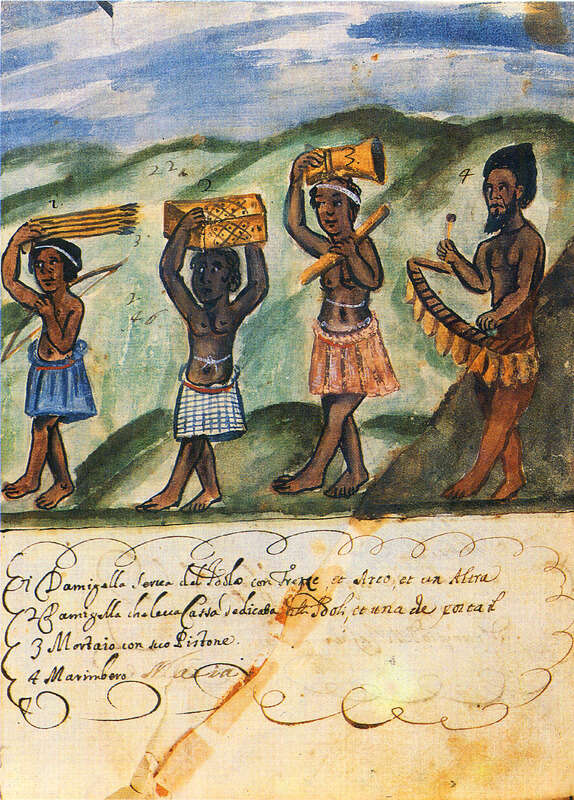 1
2
3
4
22
3
2
46
1 Damigella serua del Idolo con Freze, et Arco, et un Altra
2 Damigella che leua Cassa dedicata Idoli, et una che porta il
3 Mortaio con suo Pistone.
4 Marimbero